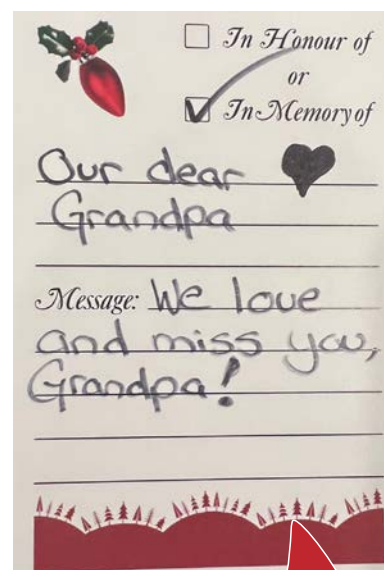 In Honour of
or
In Memory of
Our dear
Grandpa
Message: We love
and miss you,
Grandpa!